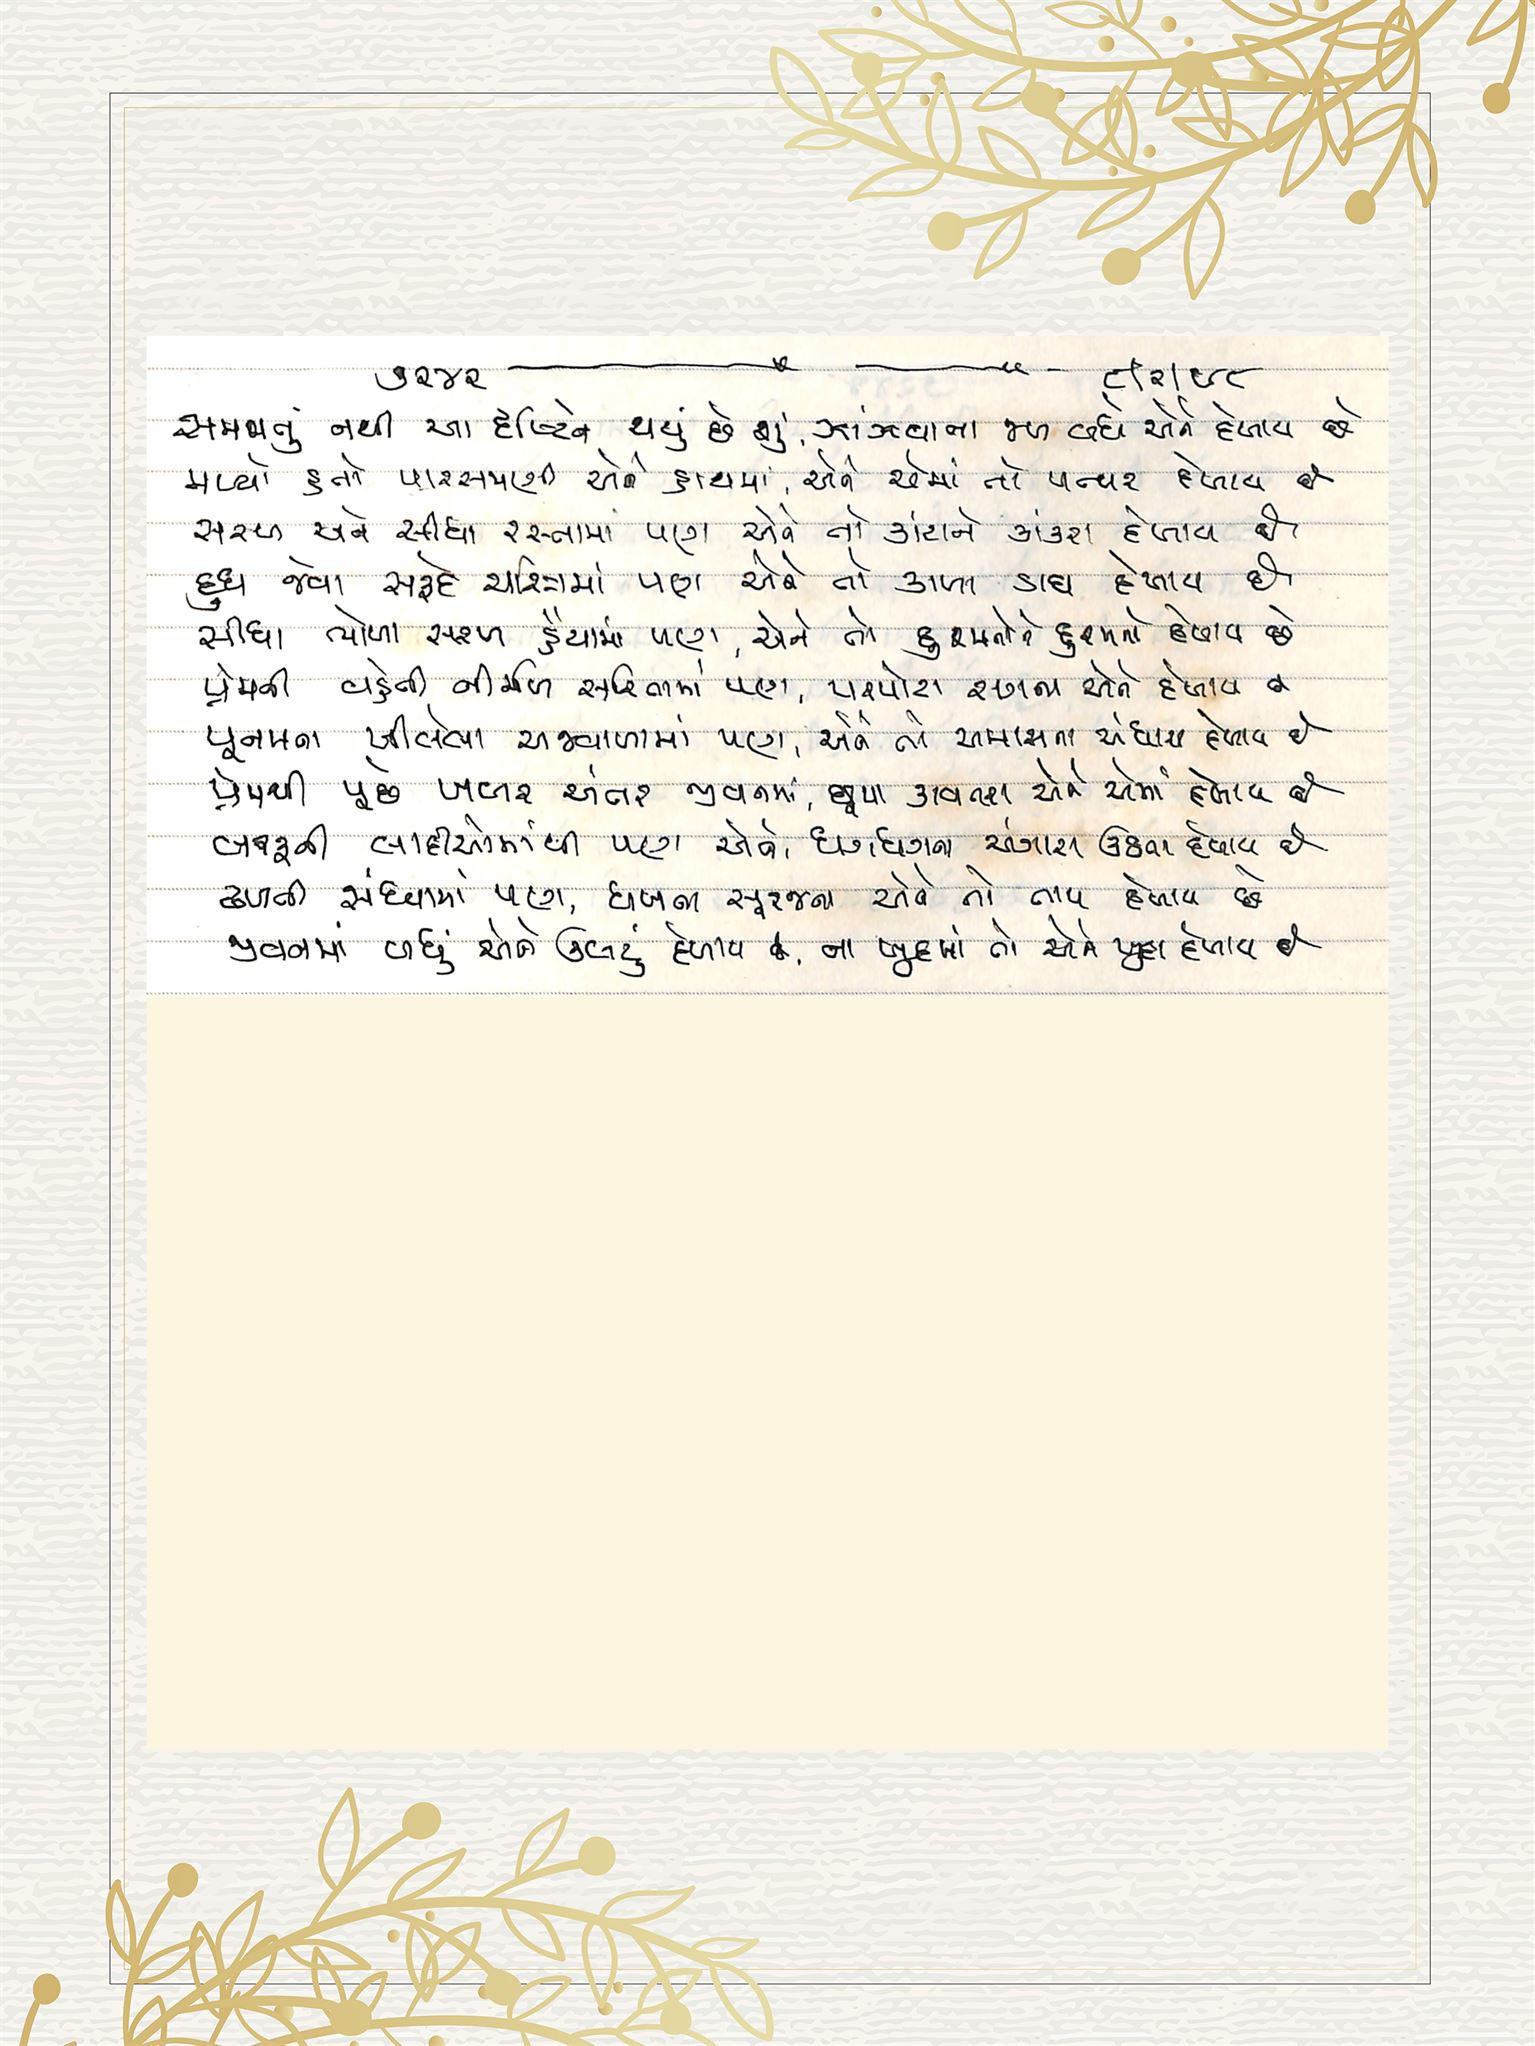 ૭૨૪૨ ૮/૨/૯૮
સમજાતું નથી આ દૃષ્ટિને થયું છે શું, ઝાંઝવાના જળ બધે એને દેખાય છે
મળ્યો હતો પારસમણી એને હાથમાં, એને એમાં તો પત્થર દેખાય છે
સરળ અને સીધા રસ્તામાં પણ એને તો કાંટાને કાંકરા દેખાય છે
દુધ જેવા સફેદ ચરિત્રમાં પણ એને તો કાળા ડાઘ દેખાય છે
સીધા ભોળા સરળ હૈયામાં પણ, એને તો દુશ્મનોને દુશ્મનો દેખાય છે
પ્રેમની વહેતી નીર્મળ સરિતામાં પણ, પરપોટા રંગના એને દેખાય છે
પૂનમના ખીલેલા અજવાળામાં પણ, એને તો અમાસના અંધારા દેખાય છે
પ્રેમથી પૂછે ખબર અંતર જીવનમાં, છૂપા કાવતરા એને એમાં દેખાય છે
બરફની લાદીઓમાંથી પણ એને, ધગધગતા અંગારા ઉઠતા દેખાય છે
ઢળતી સંધ્યામાં પણ, ધખતા સૂરજના એને તો તાપ દેખાય છે
જીવનમાં બધું એને ઉલટું દેખાય છે, ના ખુદમાં તો એને ખુદા દેખાય છે